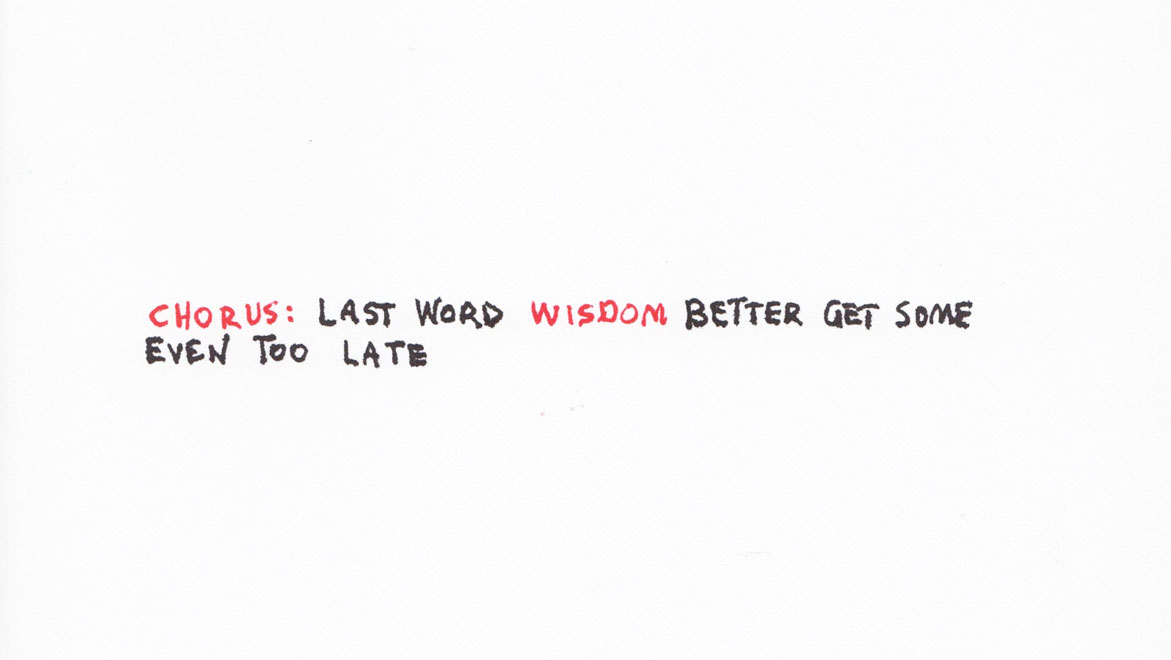 CHORUS: LAST WORD WISDOM BETTER GET SOME
EVEN TOO LATE